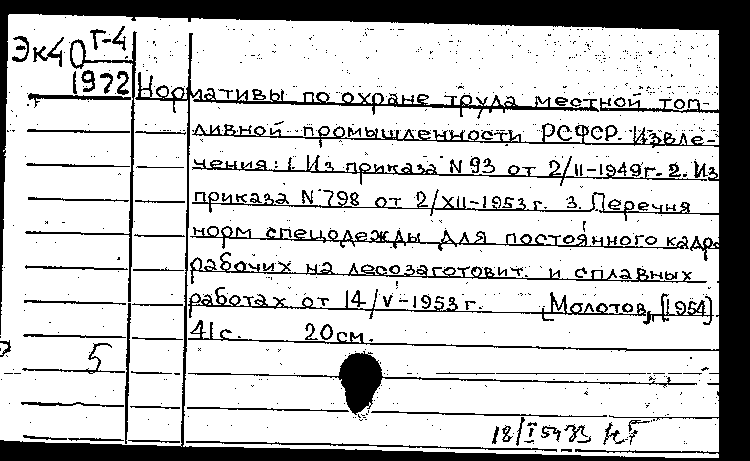 Эк40 Т-4
1972
Нормативы по охране труда местной топ-
ливной промышленности РСФСР. Извле-
чения: 1. Из приказа N 93 от 2/II-1949г. 2. Из
приказа N 798 от 2/XII-1953г. 3. Перечня
норм спецодежды для постоянного кадра
рабочих на лесозаготовит. и сплавных
работах от 14/V-1953г. [Молотов, [1954]
41с. 20см.
5
18/I